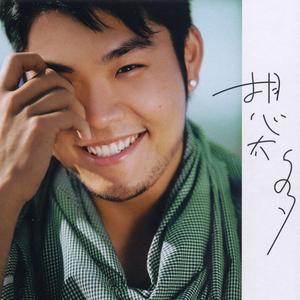 想太多